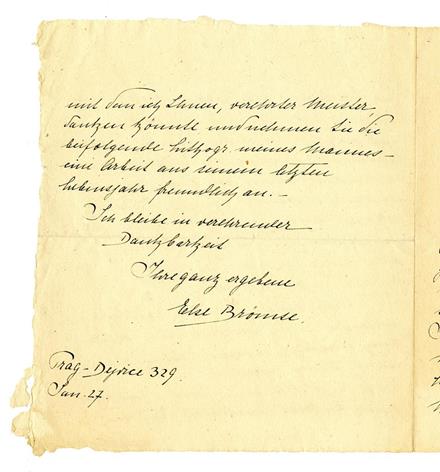 mit dem ich Ihnen, verehrter Meister,
danken könnte und nehmen Sie die
beifolgende Lithogr. meines Mannes –
eine Arbeit aus seinem letzten
Lebensjahr freundlich an. –
Ich bleibe in verehrender
Dankbarkeit
Ihre ganz ergebene
Else Brömse.
Prag-Dejvice 329.
Jan. 27.